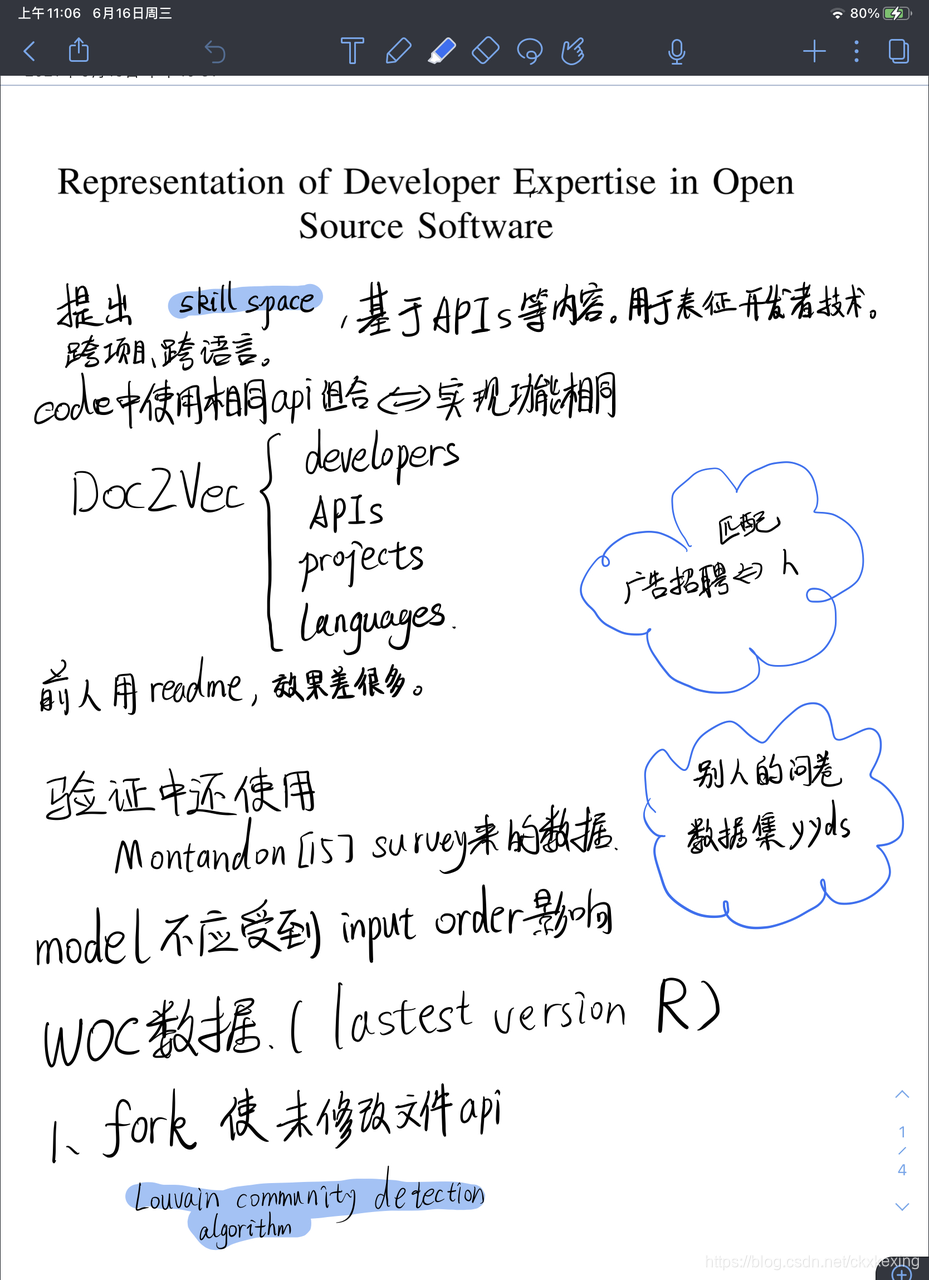 上午11:06 6月16日周三
80%
Representation of Developer Expertise in Open
Source Software
提出 skill space，基于APIs等内容。用于表征开发者技术。
跨项目、跨语言。
code中使用相同api组合⇔实现功能相同
Doc2Vec
developers
APIs
projects
languages.
匹配
广告招聘⇔ h
前人用readme，效果差很多。
别人的问卷
数据集yyds
验证中还使用
Montandon [15] survey来的数据.
model 不应受到 input order影响
WOC数据.( lastest version R)
1、fork 使 未修改文件api
Louvain community detection
algorithm
1
/
4
https://blog.csdn.net/ckxkexing